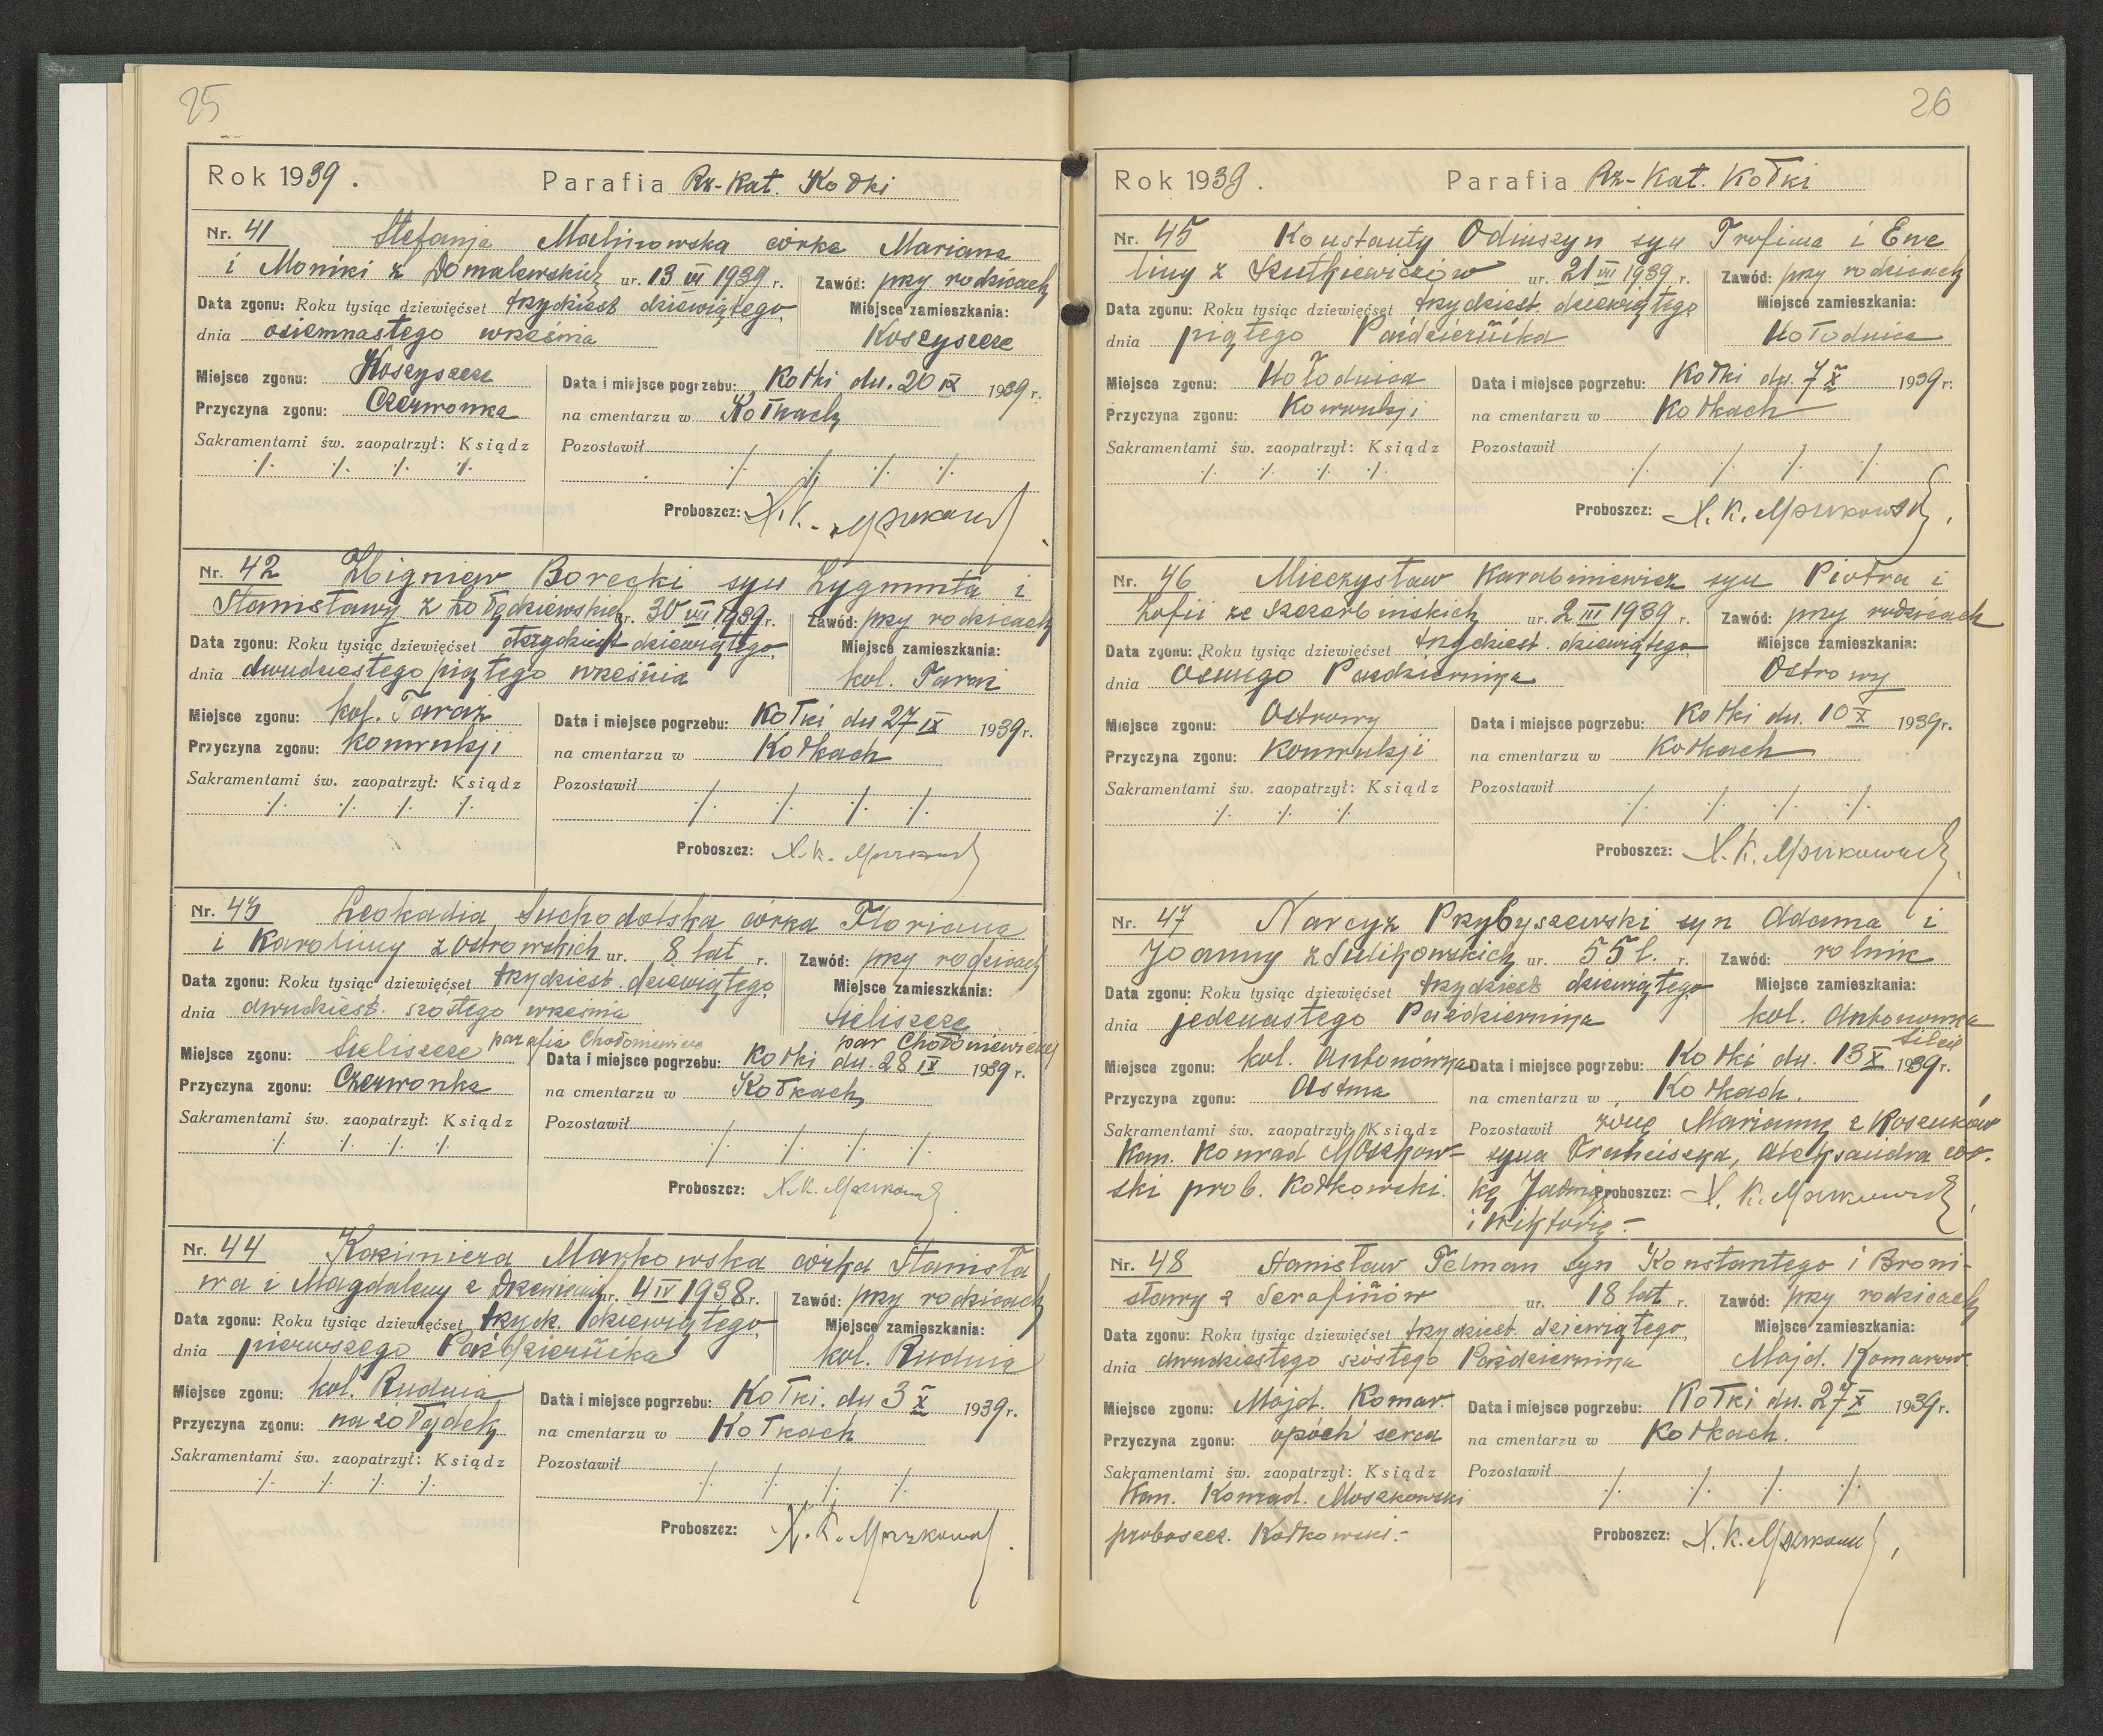 25
Rok 1939. Parafia Rz-Kat. Kołki
Nr. 41 Stefanja Malinowska córka Mariana
i Moniki z Domalewskich ur. 13 VI 1939 r. Zawód: przy rodzicach
Data zgonu: Roku tysiąc dziewięćset trzydziest dziewiątego Miejsce zamieszkania:
dnia osiemnastego września Koszyszcze
Miejsce zgonu: Koszyszcze Data i miejsce pogrzebu: Kołki dn. 20 IX 1939 r.
Przyczyna zgonu: Czerwonka na cmentarzu w Kołkach
Sakramentami św. zaopatrzył: Ksiądz Pozostawił
./. ./. ./. ./. ./. ./. ./. ./.
Proboszcz: X. K. Moszkowski
Nr. 42 Zbigniew Borecki syn Zygmunta i
Stanisławy z Żołądziewskich ur. 30 VII 1939 r. Zawód: przy rodzicach
Data zgonu: Roku tysiąc dziewięćset trzydziest dziewiątego Miejsce zamieszkania:
dnia dwudziestego piątego września kol. Taraż
Miejsce zgonu: kol. Taraż Data i miejsce pogrzebu: Kołki dn 27 IX 1939 r.
Przyczyna zgonu: konwulsji na cmentarzu w Kołkach
Sakramentami św. zaopatrzył: Ksiądz Pozostawił
./. ./. ./. ./. ./. ./. ./. ./.
Proboszcz: X. K. Moszkowski
Nr. 43 Leokadia Suchodolska córka Floriana
i Karoliny z Ostrowskich ur. 8 lat r. Zawód: przy rodzicach
Data zgonu: Roku tysiąc dziewięćset trzydziest dziewiątego Miejsce zamieszkania:
dnia dwudziest. szóstego września Sieliszcze
parafia Chołoniewicze par Chołoniewicze
Miejsce zgonu: Sieliszcze Data i miejsce pogrzebu: Kołki dn. 28 IX 1939 r.
Przyczyna zgonu: Czerwonka na cmentarzu w Kołkach
Sakramentami św. zaopatrzył: Ksiądz Pozostawił
./. ./. ./. ./. ./. ./. ./. ./.
Proboszcz: X. K. Moszkowski
Nr. 44 Kazimiera Markowska córka Stanisła
wa i Magdaleny z ur. 4 IV 1938 r. Zawód: przy rodzicach
Data zgonu: Roku tysiąc dziewięćset trzydz. dziewiątego Miejsce zamieszkania:
dnia pierwszego Października kol. Rudnia
Miejsce zgonu: kol. Rudnia Data i miejsce pogrzebu: Kołki. dn 3 X 1939 r.
Przyczyna zgonu: na żołądek na cmentarzu w Kołkach
Sakramentami św. zaopatrzył: Ksiądz Pozostawił
./. ./. ./. ./. ./. ./. ./. ./.
Proboszcz: X. K. Moszkowski
26
Rok 1939. Parafia Rz-Kat. Kołki
Nr. 45 Konstanty Odinszyn syn Trofima i Ewe
liny z Szutkiewiczów ur. 21 VII 1939 r. Zawód: przy rodzicach
Data zgonu: Roku tysiąc dziewięćset trzydziest. dziewiątego Miejsce zamieszkania:
dnia piątego Października Hołodnica
Miejsce zgonu: Hołodnica Data i miejsce pogrzebu: Kołki dn. 7 X 1939 r.
Przyczyna zgonu: Konwulsji na cmentarzu w Kołkach
Sakramentami św. zaopatrzył: Ksiądz Pozostawił
./. ./. ./. ./. ./. ./. ./. ./.
Proboszcz: X. K. Moszkowski
Nr. 46 Mieczysław Karabiniewicz syn Piotra i
Zofii ze Szczerbińskich ur. 2 III 1939 r. Zawód: przy rodzicach
Data zgonu: Roku tysiąc dziewięćset trzydziest. dziewiątego Miejsce zamieszkania:
dnia Ósmego Października Ostrowy
Miejsce zgonu: Ostrowy Data i miejsce pogrzebu: Kołki dn. 10 X 1939 r.
Przyczyna zgonu: Konwulsji na cmentarzu w Kołkach
Sakramentami św. zaopatrzył: Ksiądz Pozostawił
./. ./. ./. ./. ./. ./. ./.
Proboszcz: X. K. Moszkowski
Nr. 47 Narcyz Przybyszewski syn Adama i
Joanny z Sulikowskich ur. 55 l. r. Zawód: rolnik
Data zgonu: Roku tysiąc dziewięćset trzydziest dziewiątego Miejsce zamieszkania:
dnia jedenastego Października kol. Antonowka
Miejsce zgonu: kol. Antonówka Data i miejsce pogrzebu: Kołki dn. 13 X 1939 r.
Przyczyna zgonu: Astma na cmentarzu w Kołkach.
Sakramentami św. zaopatrzył: Ksiądz Pozostawił żonę Mariannę z Koszuków
Kan. Konrad Moszkow- syna Franciszka, Aleksandra cór.
ski prob. Kołkowski. kę Jadwigę Proboszcz: X. K. Moszkowski
i Wiktorię -
Nr. 48 Stanisław Felman syn Konstantego i Broni-
sławy z Serafinów ur. 18 lat r. Zawód: przy rodzicach
Data zgonu: Roku tysiąc dziewięćset trzydziest. dziewiątego Miejsce zamieszkania:
dnia dwudziestego szóstego Października Majd. Komarow.
Miejsce zgonu: Majd. Komar. Data i miejsce pogrzebu: Kołki dn. 27 X 1939 r.
Przyczyna zgonu: serca na cmentarzu w Kołkach.
Sakramentami św. zaopatrzył: Ksiądz Pozostawił
Kan. Konrad. Moszkowski ./. ./. ./. ./.
proboszcz. Kołkowski.- Proboszcz: X. K. Moszkowski